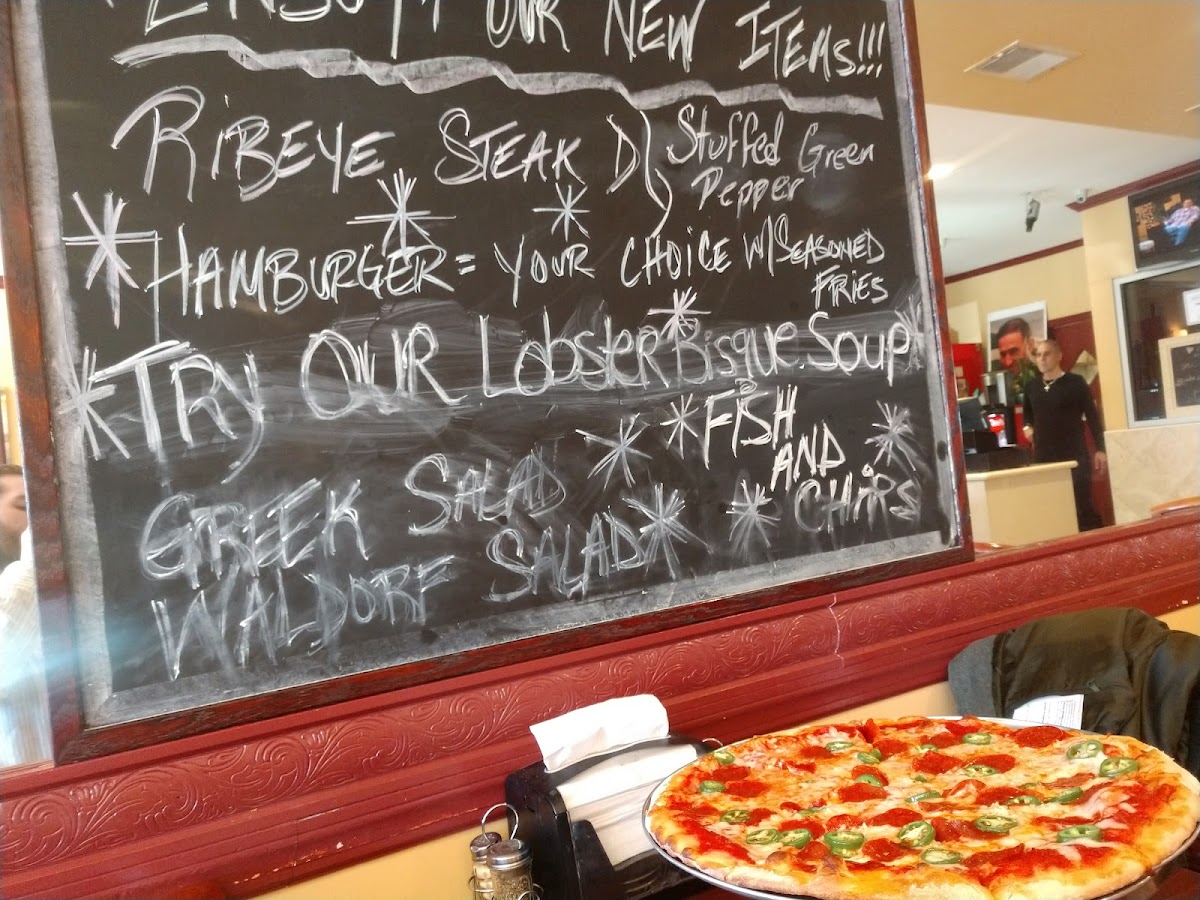 ENJOY OUR NEW ITEMS!!!
RiBEYE STEAK D
Stuffed Green
Pepper
HAMBURGER = YOUR CHOICE W/SEASONED
FRIES
TRY OUR LobsTER Bisque Soup
FISH
AND
CHIPS
GREEK SALAD
WALDORF SALAD